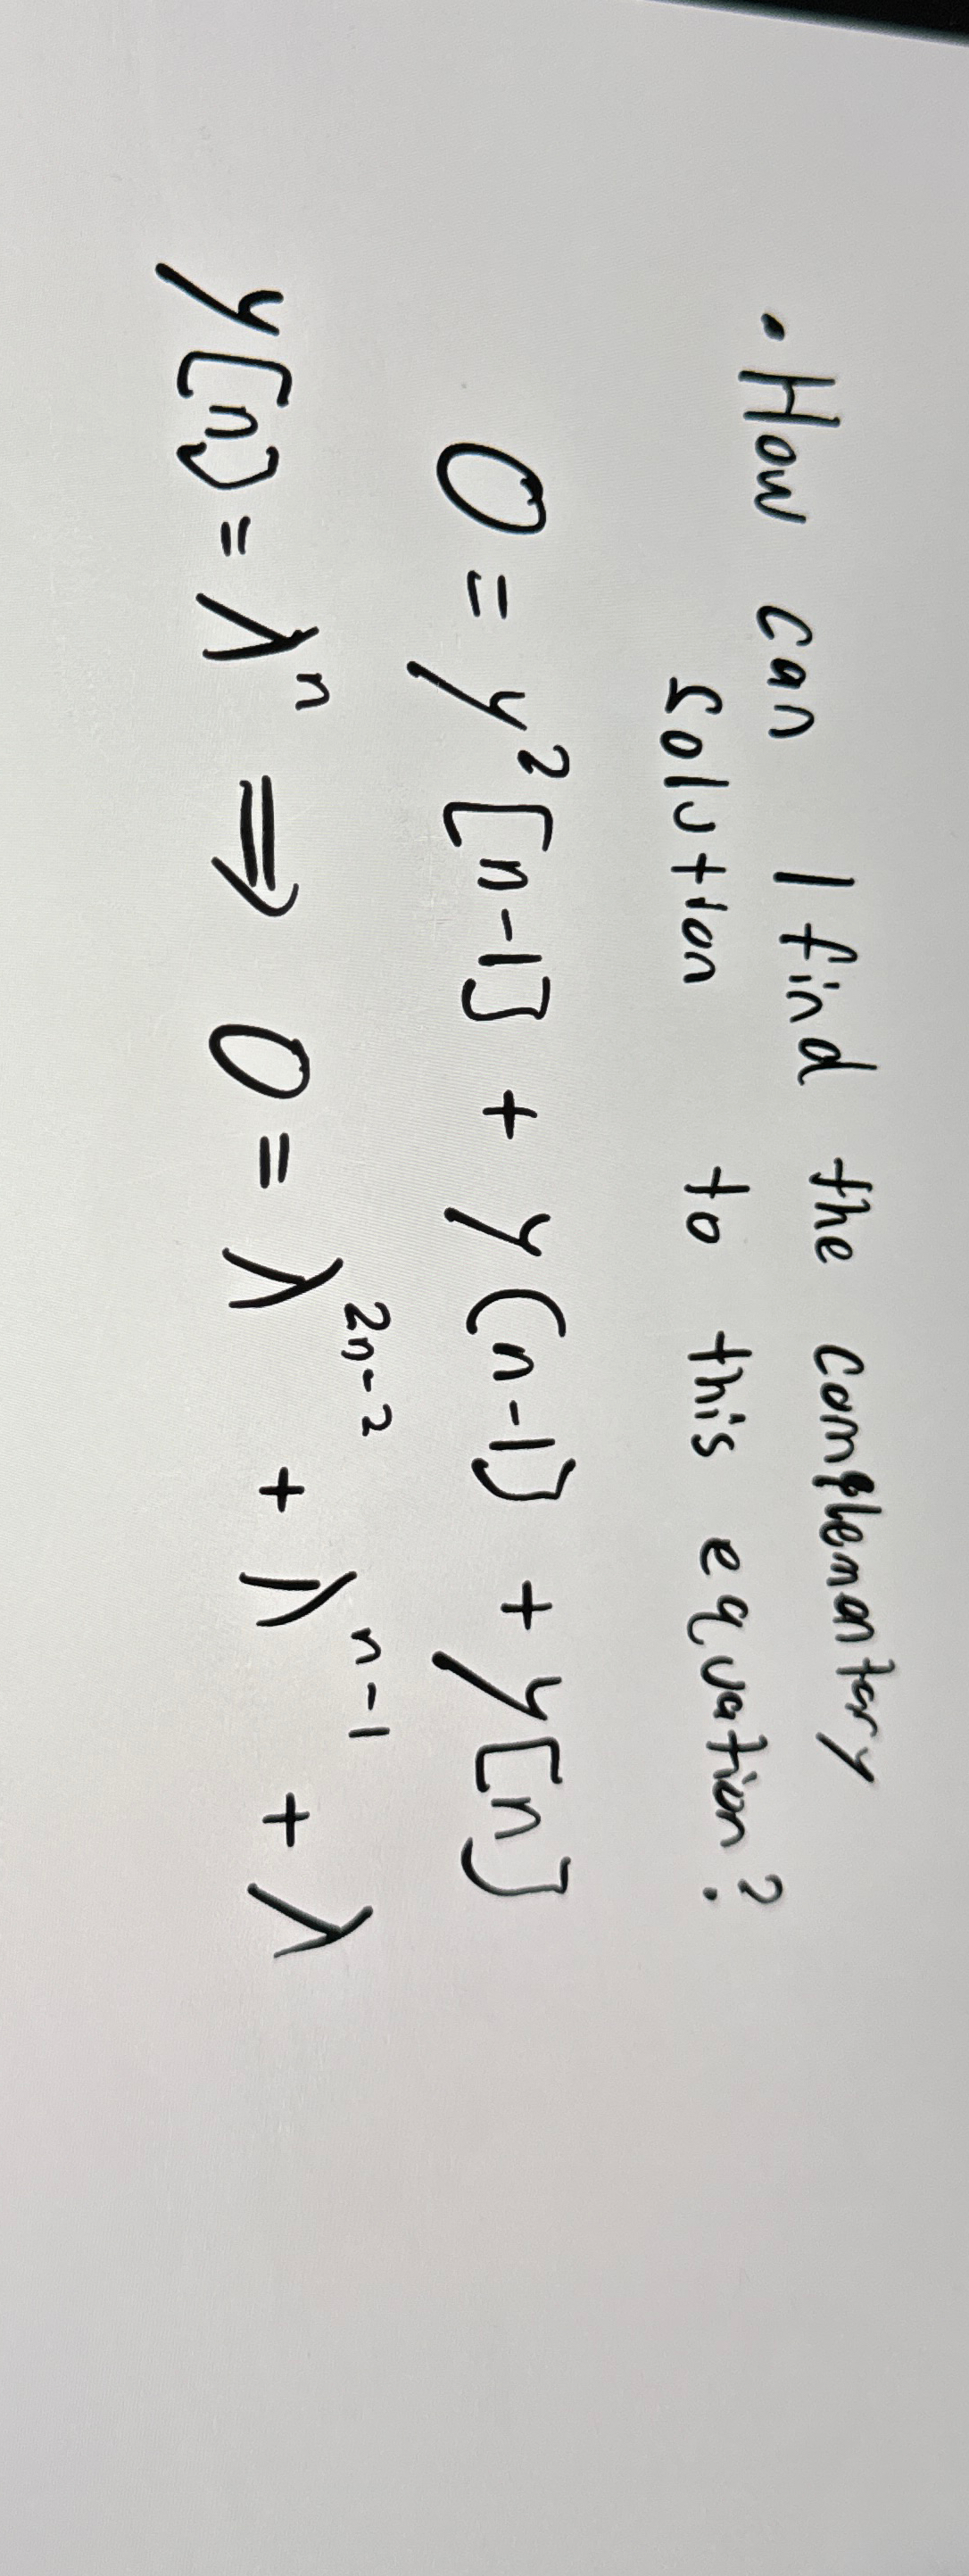 • How can I find the complementary
solution to this equation?
0 = y²[n-1] + y[n-1] + y[n]
y[n] = λⁿ ⇒ 0 = λ²ⁿ⁻² + λⁿ⁻¹ + λ